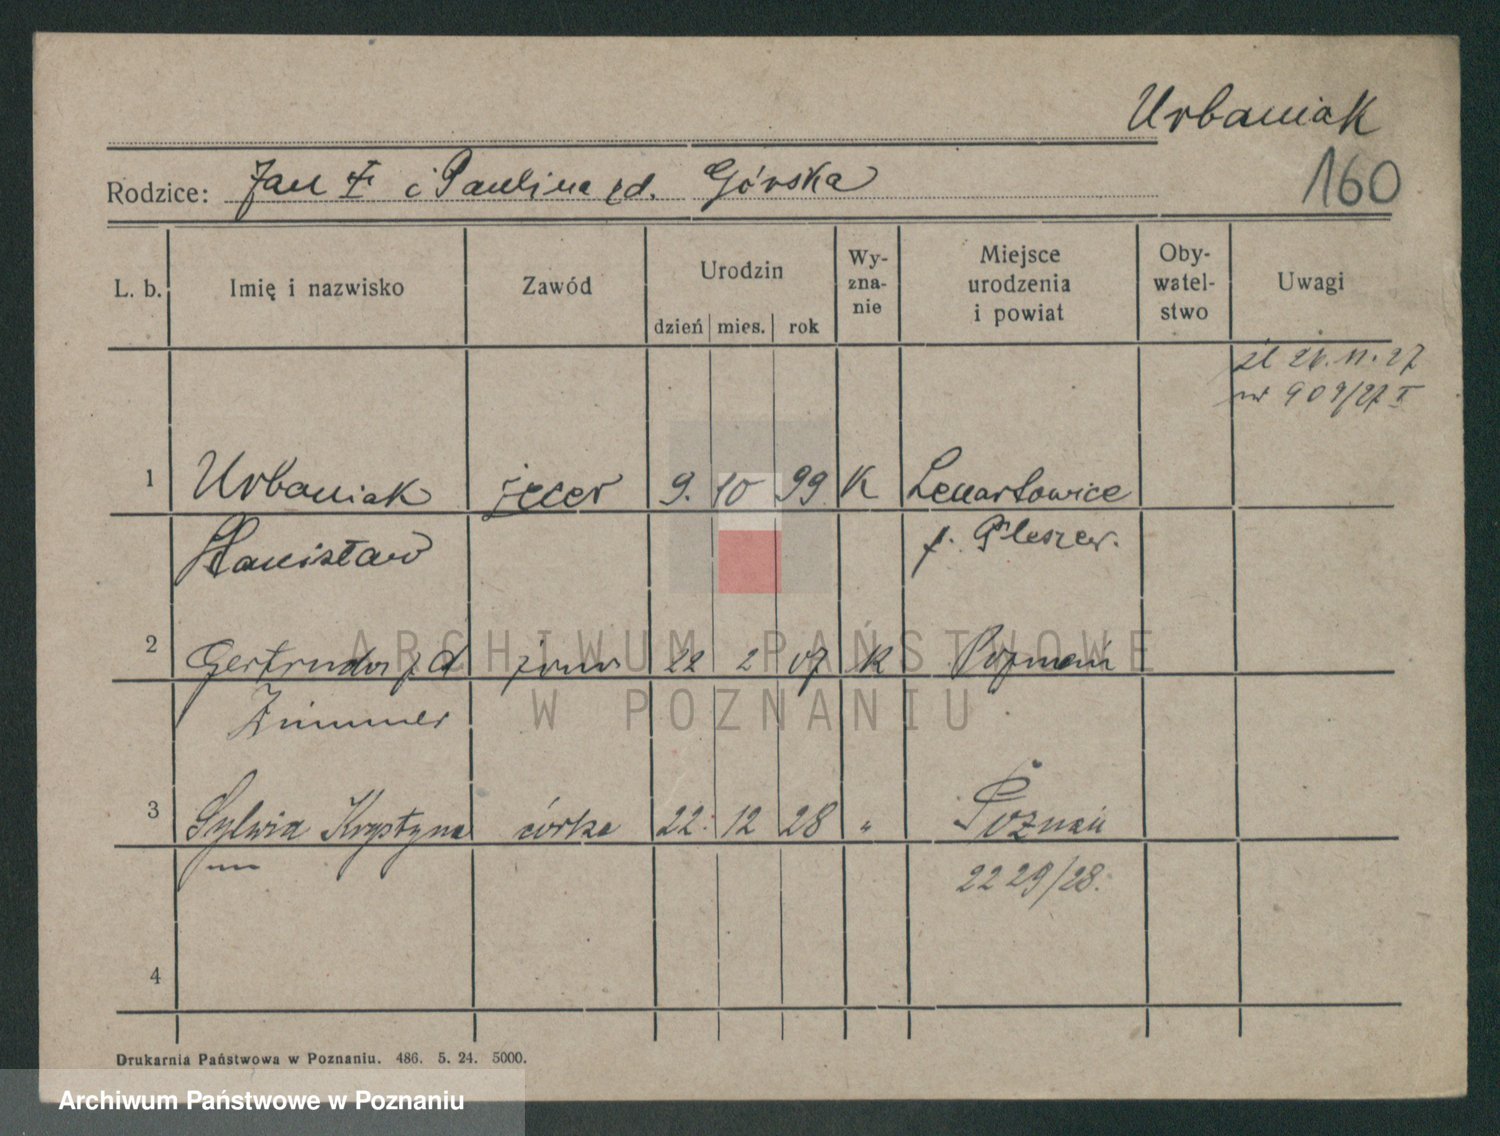 Urbaniak
160
Rodzice: Jan i Paulina zd. Górska
L. b. Imię i nazwisko Zawód Urodzin dzień mies. rok Wy-zna-nie Miejsce urodzenia i powiat Oby-watel-stwo Uwagi
śl 26.11.27
nr 909/27 I
1 Urbaniak zecer 9. 10 99 K Lenartowice
Stanisław p. Pleszew.
2 Gertruda z d żona 22 2 07 K Poznań
Zimmer
3 Sylwia Krystyna córka 22. 12 28 " Poznań
2229/28.
4
Drukarnia Państwowa w Poznaniu. 486. 5. 24. 5000.
ARCHIWUM PAŃSTWOWE
W POZNANIU
Archiwum Państwowe w Poznaniu